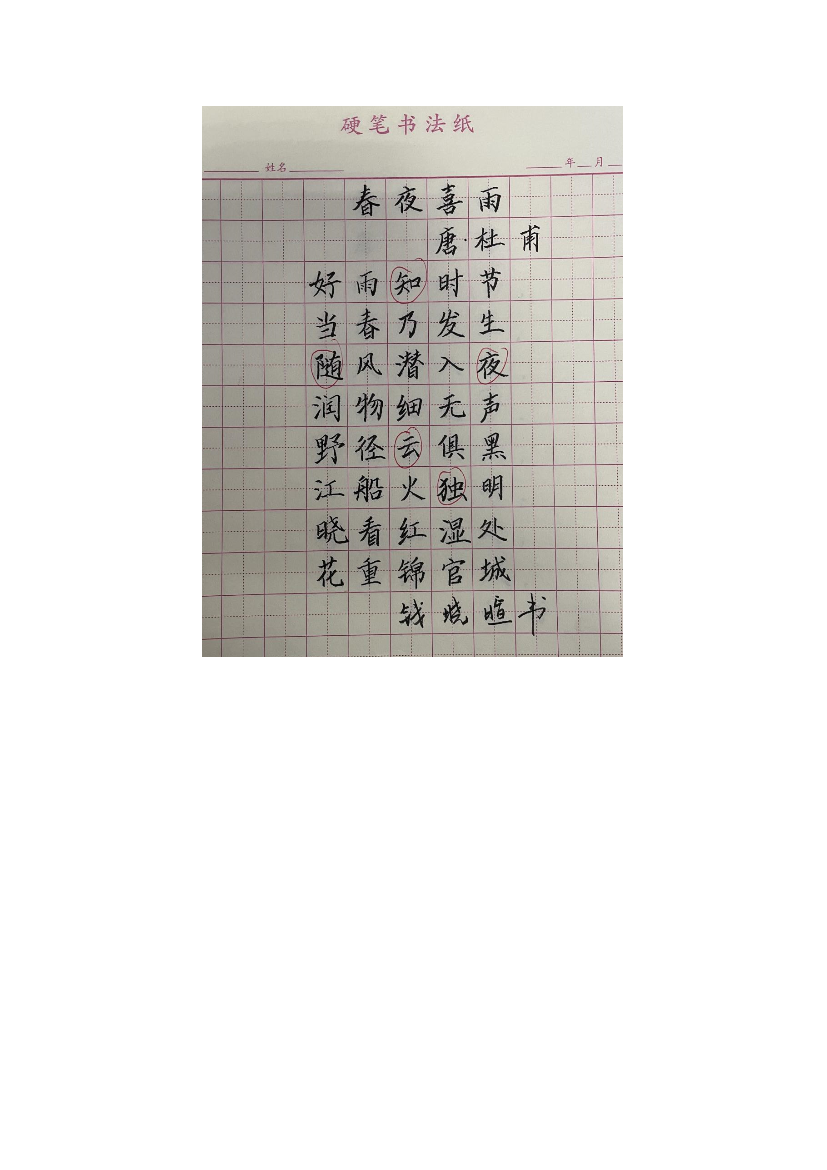 硬笔书法纸
姓名 年 月
春夜喜雨
唐·杜甫
好雨知时节
当春乃发生
随风潜入夜
润物细无声
野径云俱黑
江船火独明
晓看红湿处
花重锦官城
钱晓暄书